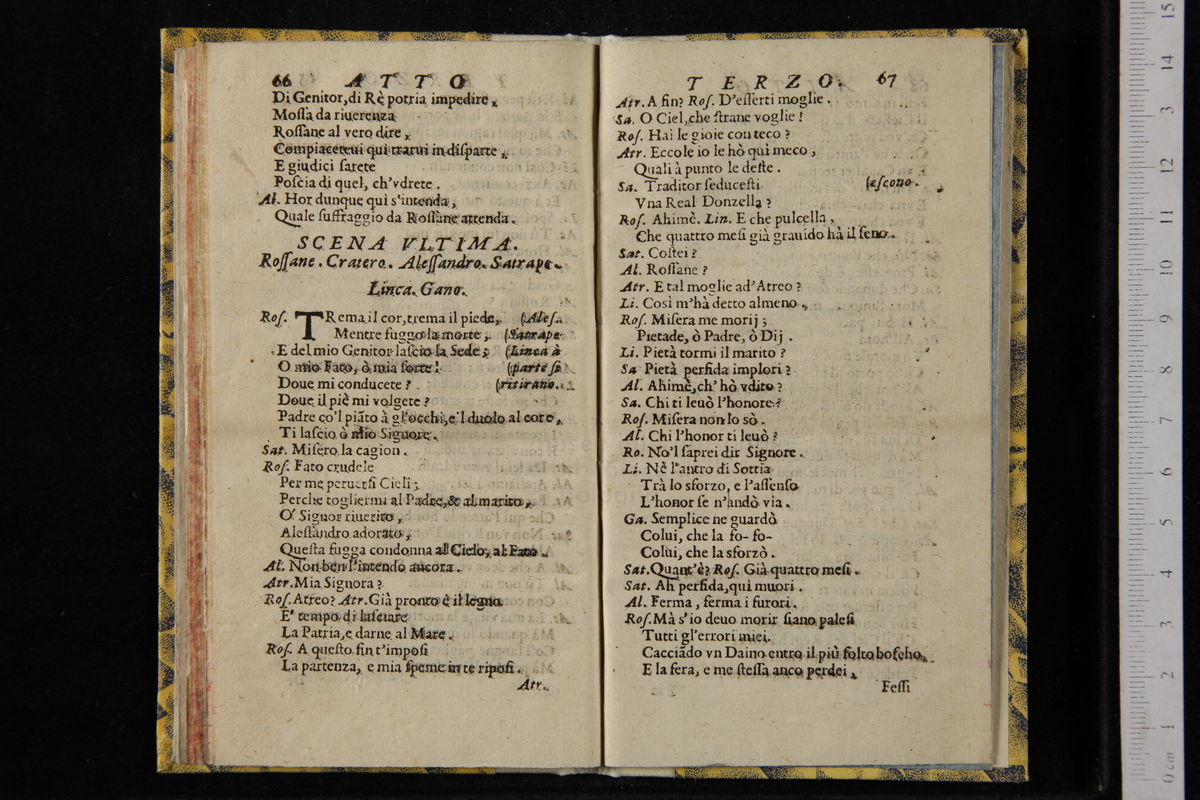 66 ATTO
Di Genitor,di Rè potria impedire,
Moſſa da riuerenza
Roſſane al vero dire,
Compiaceteui qui trarui in diſparte,
E giudici ſarete
Poſcia di quel, ch'vdrete.
Al. Hor dunque quì s'intenda,
Quale ſuffraggio da Roſſane attenda.
SCENA VLTIMA.
Roſſane. Cratero. Aleſſandro. Satrape.
Linca. Gano.
Roſ. TRema il cor,trema il piede, (Aleſ.
Mentre fuggo la morte, (Satrape
E del mio Genitor laſcio la Sede; (Linca à
O mio Fato, ò mia ſorte! (parte ſi
Doue mi conducete? (ritirano.
Doue il piè mi volgete?
Padre co'l piãto à gl'occhi,e'l duolo al core,
Ti laſcio ò mio Signore.
Sat. Miſero la cagion.
Roſ. Fato crudele
Per me peruerſi Cieli;
Perche togliermi al Padre,& al marito,
O' Signor riuerito,
Aleſſandro adorato,
Queſta fugga condonna al Cielo, al Fato.
Al. Non ben l'intendo ancora.
Atr. Mia Signora?
Roſ. Atreo? Atr. Già pronto è il legno
E' tempo di laſciare
La Patria,e darne al Mare.
Roſ. A queſto fin t'impoſi
La partenza, e mia ſpeme in te ripoſi.
Atr.
TERZO. 67
Atr. A fin? Roſ. D'eſſerti moglie.
Sa. O Ciel,che ſtrane voglie!
Roſ. Hai le gioie con teco?
Atr. Eccole io le hò quì meco,
Quali à punto le deſte.
Sa. Traditor ſeduceſti (eſcono.
Vna Real Donzella?
Roſ. Ahimè. Lin. E che pulcella,
Che quattro meſi già grauido hà il ſeno.
Sat. Coſtei?
Al. Roſſane?
Atr. E tal moglie ad'Atreo?
Li. Così m'hà detto almeno.
Roſ. Miſera me morij;
Pietade, ò Padre, ò Dij.
Li. Pietà tormi il marito?
Sa Pietà perfida implori?
Al. Ahimè,ch' hò vdito?
Sa. Chi ti leuò l'honore?
Roſ. Miſera non lo sò.
Al. Chi l'honor ti leuò?
Ro. No'l ſaprei dir Signore.
Li. Nè l'antro di Sottia
Trà lo sforzo, e l'aſſenſo
L'honor ſe n'andò via.
Ga. Semplice ne guardò
Colui, che la fo- fo-
Colui, che la sforzò.
Sat. Quant'è? Roſ. Già quattro meſi.
Sat. Ah perfida,quì muori.
Al. Ferma, ferma i furori.
Roſ. Mà s'io deuo morir ſiano paleſi
Tutti gl'errori miei.
Cacciãdo vn Daino entro il più folto boſcho,
E la fera, e me ſteſſa anco perdei,
Feſſi